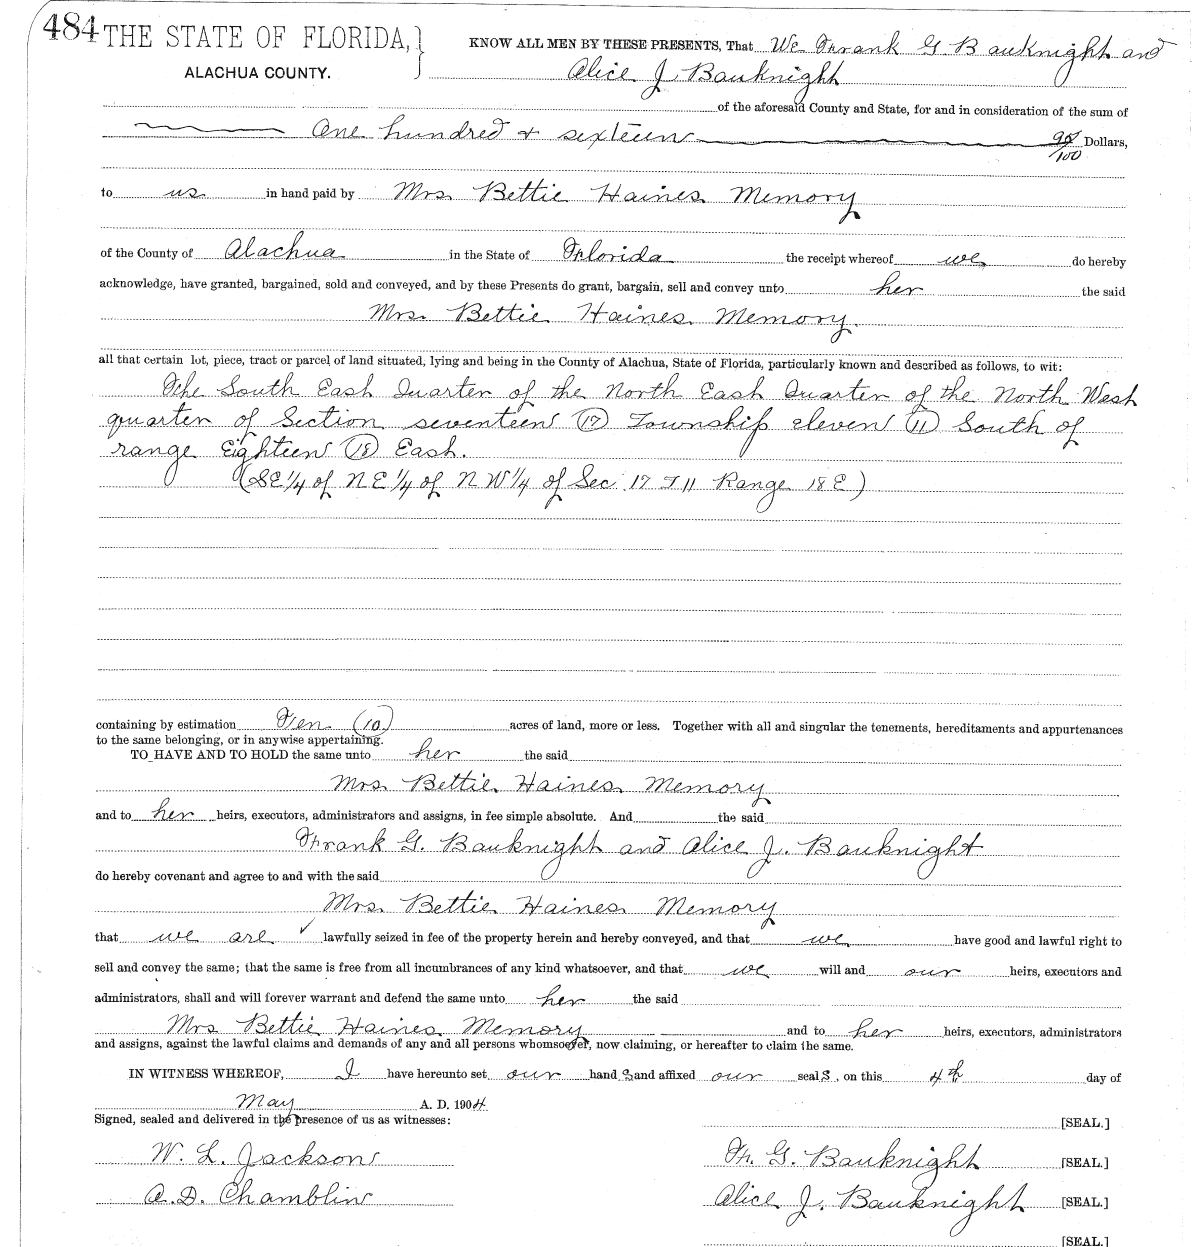 484 THE STATE OF FLORIDA,} KNOW ALL MEN BY THESE PRESENTS, That We Frank G. Bauknight and
ALACHUA COUNTY. Alice J. Bauknight
of the aforesaid County and State, for and in consideration of the sum of
One hundred & sixteen /100 Dollars,
to us in hand paid by Mrs. Bettie Haines Memory
of the County of Alachua in the State of Florida the receipt whereof we do hereby
acknowledge, have granted, bargained, sold and conveyed, and by these Presents do grant, bargain, sell and convey unto her the said
Mrs. Bettie Haines Memory.
all that certain lot, piece, tract or parcel of land situated, lying and being in the County of Alachua, State of Florida, particularly known and described as follows, to wit:
The South East Quarter of the North East Quarter of the North West
quarter of Section seventeen (17) Township eleven (11) South of
range Eighteen (18) East.
(SE 1/4 of NE 1/4 of NW 1/4 of Sec. 17 T 11 Range 18 E)
containing by estimation Ten (10) acres of land, more or less. Together with all and singular the tenements, hereditaments and appurtenances
to the same belonging, or in anywise appertaining.
TO HAVE AND TO HOLD the same unto her the said
Mrs. Bettie Haines Memory
and to her heirs, executors, administrators and assigns, in fee simple absolute. And the said
Frank G. Bauknight and Alice J. Bauknight
do hereby covenant and agree to and with the said
Mrs. Bettie Haines Memory
that we are ✓ lawfully seized in fee of the property herein and hereby conveyed, and that we have good and lawful right to
sell and convey the same; that the same is free from all incumbrances of any kind whatsoever, and that we will and our heirs, executors and
administrators, shall and will forever warrant and defend the same unto her the said
Mrs Bettie Haines Memory and to her heirs, executors, administrators
and assigns, against the lawful claims and demands of any and all persons whomsoever, now claiming, or hereafter to claim the same.
IN WITNESS WHEREOF, I have hereunto set our hands and affixed our seals, on this 4th day of
May A. D. 1904
Signed, sealed and delivered in the presence of us as witnesses: [SEAL.]
W. L. Jackson Fr. G. Bauknight [SEAL.]
A. D. Chamblin Alice J. Bauknight [SEAL.]
[SEAL.]